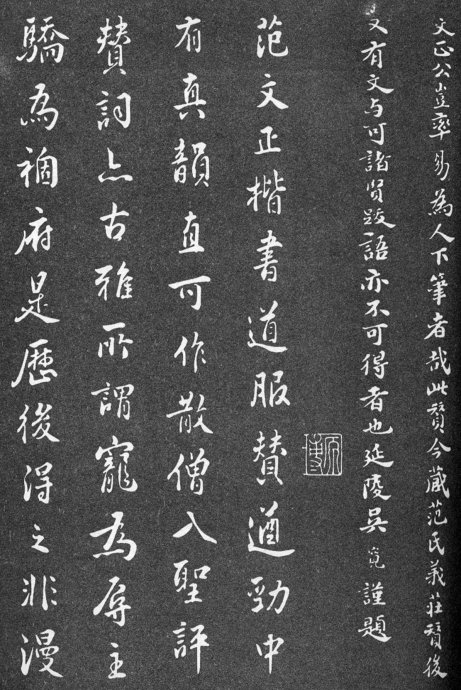 文正公豈率易為人下筆者哉此贊今藏范氏義莊贊後
又有文与可諸賢跋語亦不可得者也延陵吳寬謹題
原博
范文正楷書道服贊遒勁中
有真韻直可作散僧入聖評
贊詞亦古雅所謂寵為辱主
驕為禍府是歷後得之非漫